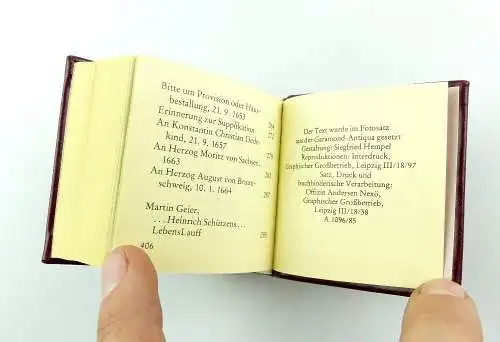 Bitte um Provision oder Haus-
bestallung, 21. 9. 1653 264
Erinnerung zur Supplikation 272
An Konstantin Christian Dede-
kind, 21. 9. 1657 276
An Herzog Moritz von Sachsen,
1663 281
An Herzog August von Braun-
schweig, 10. 1. 1664 287
Martin Geier,
. . . Heinrich Schützens . . .
LebensLauff 295
406
Der Text wurde im Fotosatz
aus der Garamond-Antiqua gesetzt
Gestaltung: Siegfried Hempel
Reproduktionen: Interdruck,
Graphischer Großbetrieb, Leipzig III/18/97
Satz, Druck und
buchbinderische Verarbeitung:
Offizin Andersen Nexö,
Graphischer Großbetrieb,
Leipzig III/18/38
A 1096/85